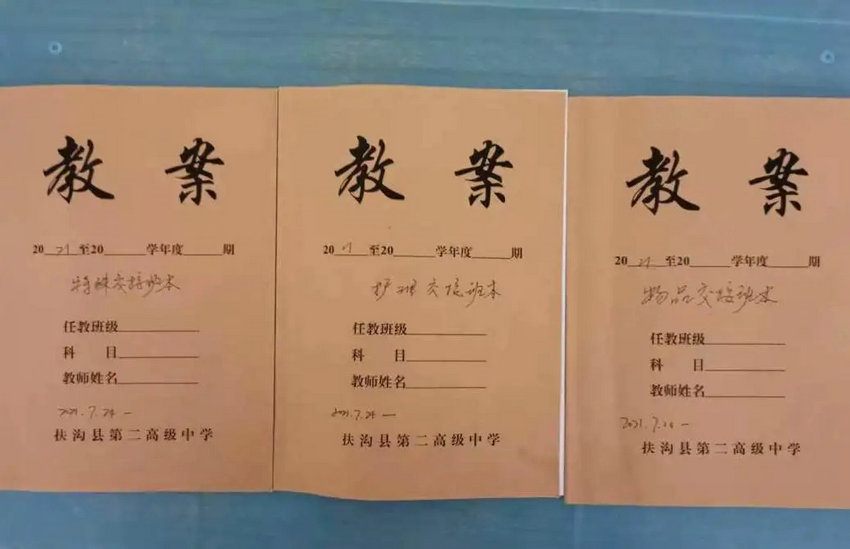 教案
2021至20 学年度 期
特殊交接班本
任教班级
科 目
教师姓名
2021.7.24—
扶沟县第二高级中学
教案
2021至20 学年度 期
护理交接班本
任教班级
科 目
教师姓名
2021.7.24—
扶沟县第二高级中学
教案
2021至20 学年度 期
物品交接班本
任教班级
科 目
教师姓名
2021.7.24—
扶沟县第二高级中学